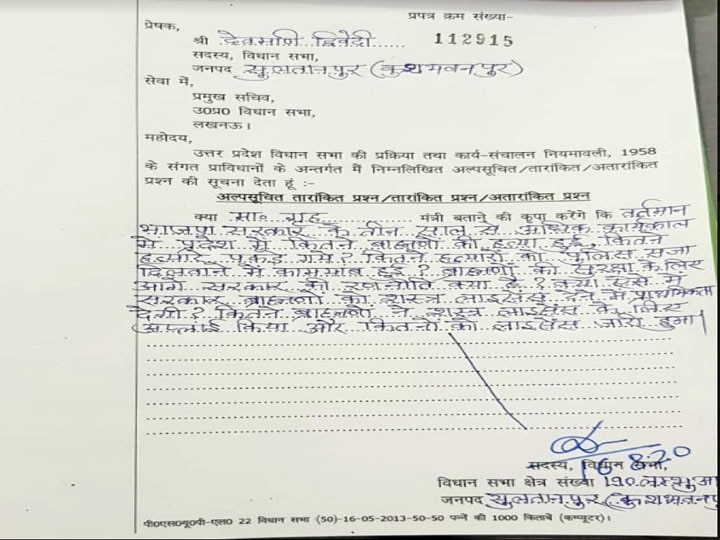 प्रपत्र क्रम संख्या-
प्रेषक,
श्री देवमणि द्विवेदी 112915
सदस्य, विधान सभा,
जनपद सुलतानपुर (कुशभवनपुर)
सेवा में,
प्रमुख सचिव,
उ०प्र० विधान सभा,
लखनऊ।
महोदय,
उत्तर प्रदेश विधान सभा की प्रक्रिया तथा कार्य-संचालन नियमावली, 1958
के संगत प्राविधानों के अन्तर्गत मैं निम्नलिखित अल्पसूचित/तारांकित/अतारांकित
प्रश्न की सूचना देता हूं :-
अल्पसूचित तारांकित प्रश्न/तारांकित प्रश्न/अतारांकित प्रश्न
क्या मा० गृह मंत्री बताने की कृपा करेंगे कि वर्तमान
भाजपा सरकार के तीन साल से अधिक कार्यकाल
में प्रदेश में कितने ब्राह्मणों की हत्या हुई, कितने
हत्यारे पकड़े गये? कितने हत्यारों को पुलिस सजा
दिलवाने में कामयाब हुई? ब्राह्मणों की सुरक्षा के लिए
आगे सरकार की रणनीति क्या है? क्या ऐसे में
सरकार ब्राह्मणों को शस्त्र लाइसेंस देने में प्राथमिकता
देगी? कितने ब्राह्मणों ने शस्त्र लाइसेंस के लिए
अप्लाई किया और कितनों को लाइसेंस जारी हुआ।
16 8 20
सदस्य, विधान सभा,
विधान सभा क्षेत्र संख्या 190. लम्भुआ
जनपद सुलतानपुर (कुशभवनपु
पी०एस०यू०पी०-एल० 22 विधान सभा (50)-16-05-2013-50-50 पन्ने की 1000 किताबें (कम्प्यूटर)।